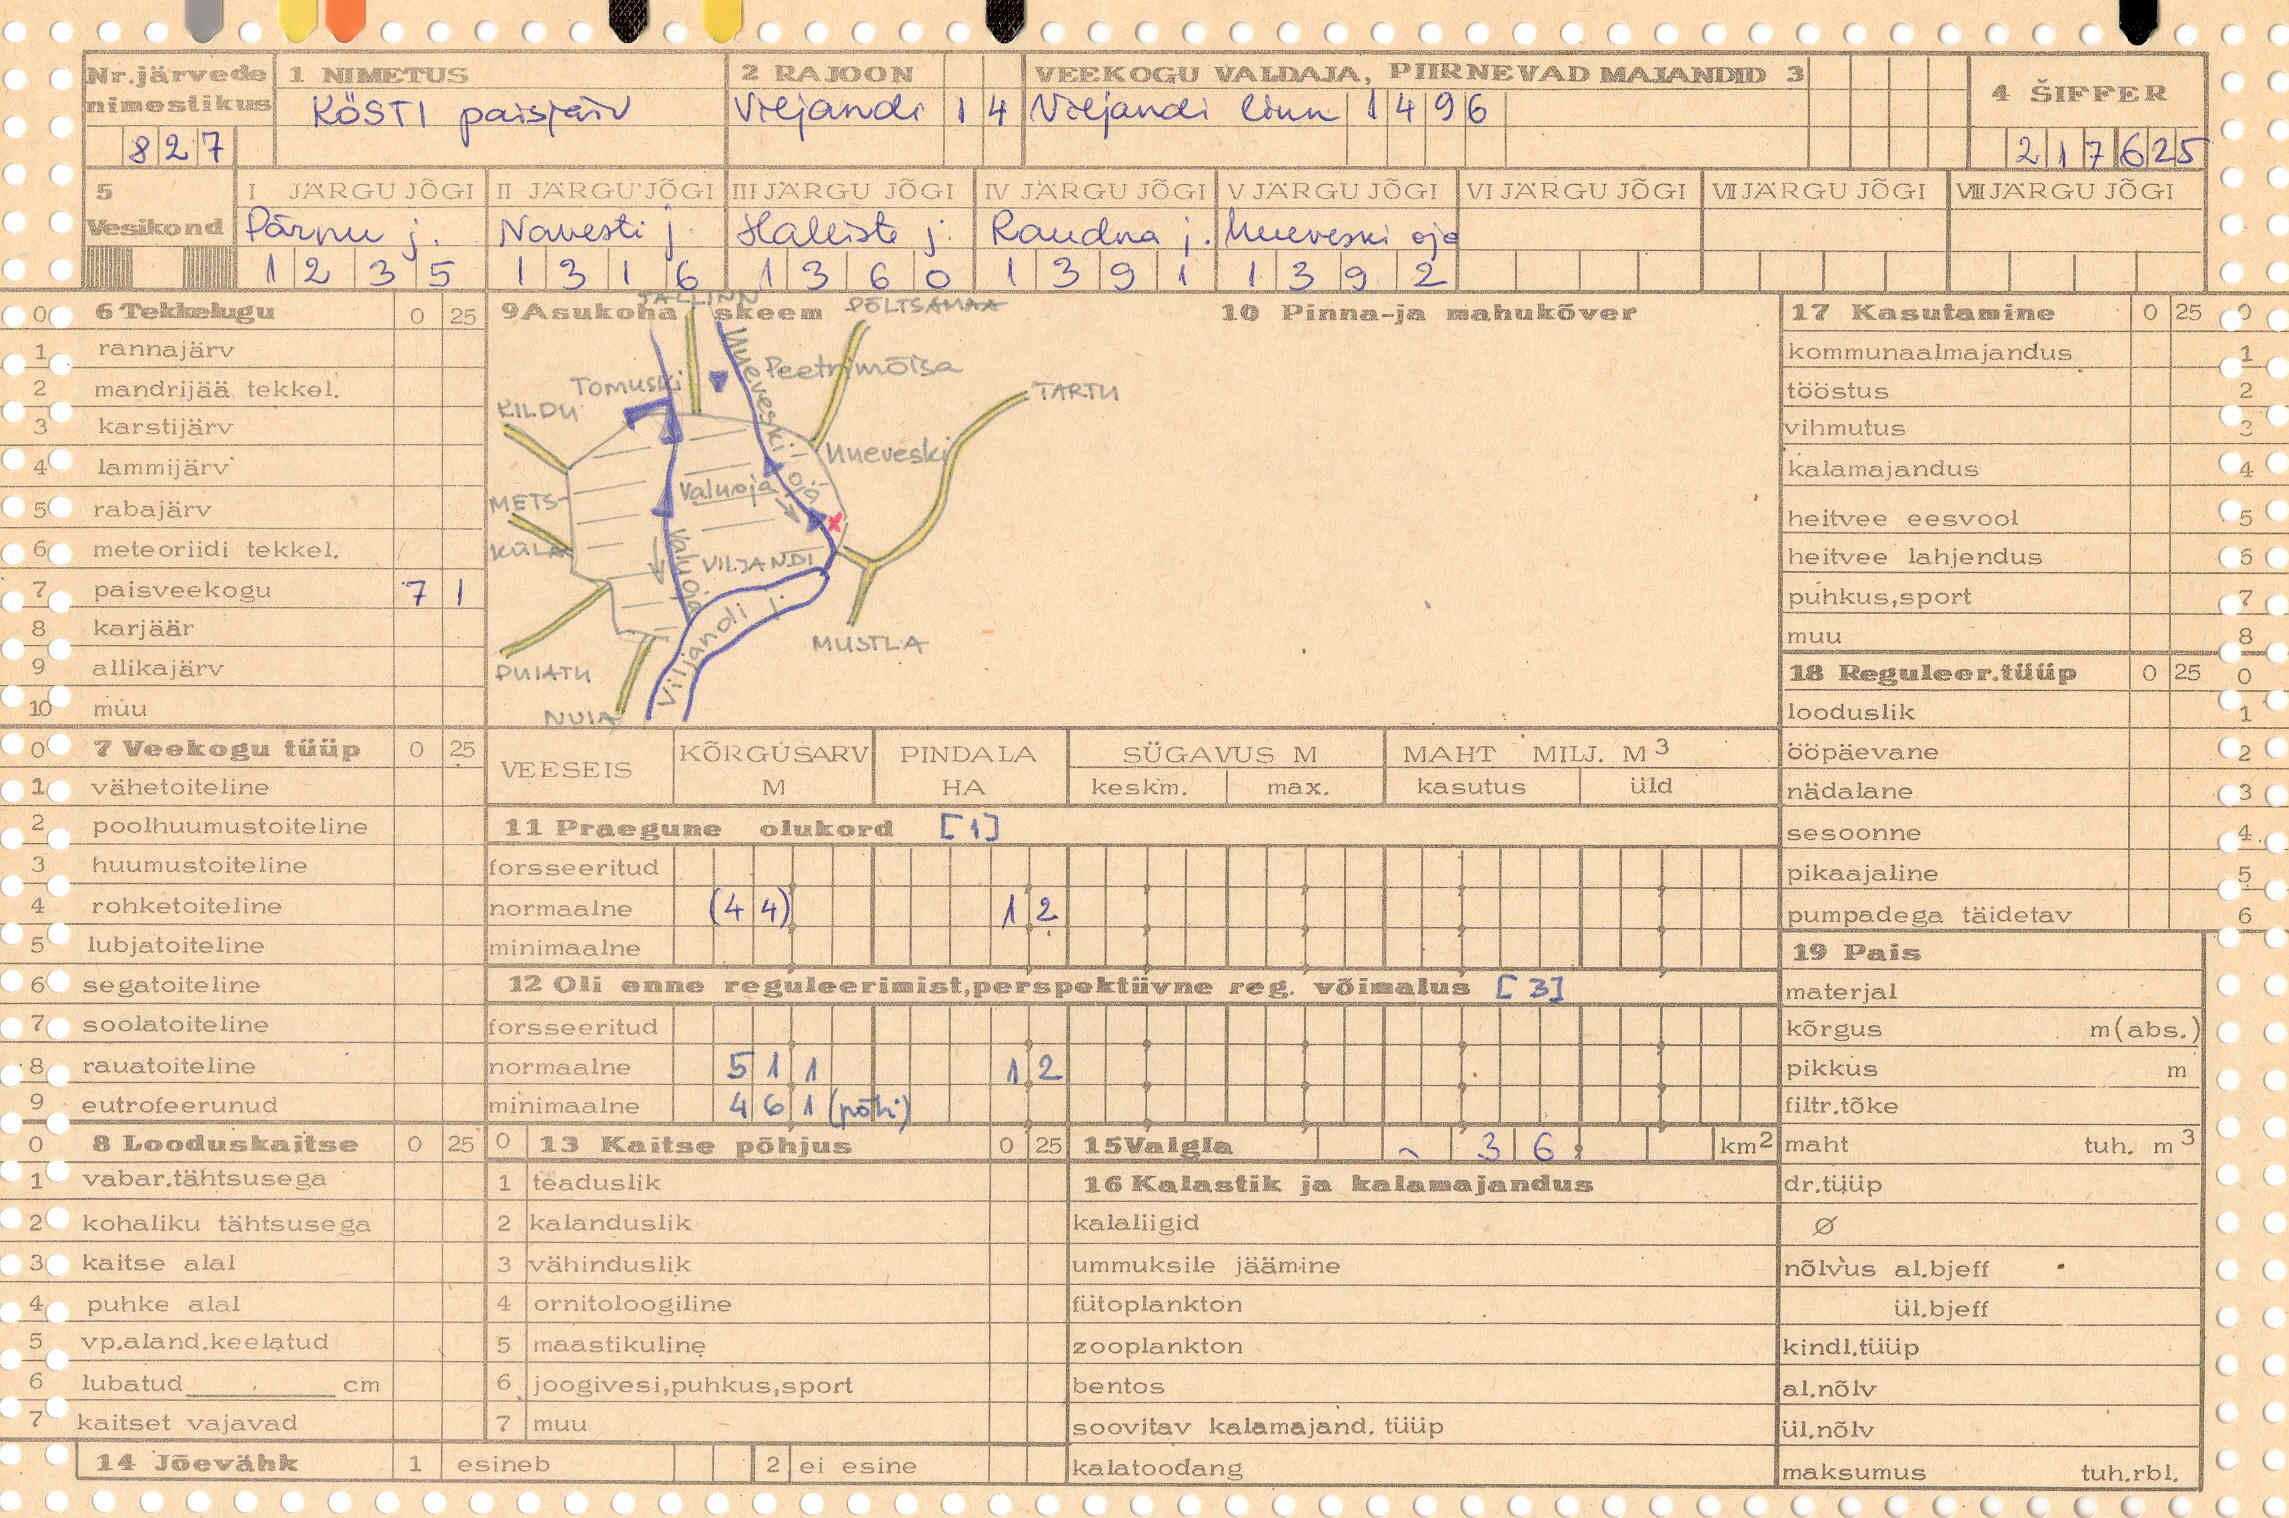 Nr.järvede nimestikus 827
1 NIMETUS KÖSTI paisjärv
2 RAJOON Viljandi 14
VEEKOGU VALDAJA, PIIRNEVAD MAJANDID 3 Viljandi linn 1496
4 ŠIFFER 217625
5 Vesikond
I JÄRGU JÕGI Pärnu j. 1235
II JÄRGU JÕGI Navesti j. 1316
III JÄRGU JÕGI Halliste j. 1360
IV JÄRGU JÕGI Raudna j. 1391
V JÄRGU JÕGI Uueveski oja 1392
VI JÄRGU JÕGI
VII JÄRGU JÕGI
VIII JÄRGU JÕGI
0 6 Tekkelugu 0 25
1 rannajärv
2 mandrijää tekkel.
3 karstijärv
4 lammijärv
5 rabajärv
6 meteoriidi tekkel.
7 paisveekogu 7 1
8 karjäär
9 allikajärv
10 muu
9 Asukoha skeem
TALLINN
PÕLTSAMAA
Uueveski oja
Peetrimõisa
Tomuski
TARTU
KILDU
Uueveski
Valuoja
METS-
KÜLA
Valuoja
VILJANDI
Viljandi j.
MUSTLA
PUIATU
NUIA
10 Pinna-ja mahukõver
0 7 Veekogu tüüp 0 25
1 vähetoiteline
2 poolhuumustoiteline
3 huumustoiteline
4 rohketoiteline
5 lubjatoiteline
6 segatoiteline
7 soolatoiteline
8 rauatoiteline
9 eutrofeerunud
VEESEIS KÕRGUSARV M PINDALA HA SÜGAVUS M keskm. max. MAHT MILJ. M3 kasutus üld
11 Praegune olukord [1]
forsseeritud
normaalne (44) 12
minimaalne
12 Oli enne reguleerimist,perspektiivne reg. võimalus [3]
forsseeritud
normaalne 511 12
minimaalne 461 (põhi)
0 8 Looduskaitse 0 25
1 vabar.tähtsusega
2 kohaliku tähtsusega
3 kaitse alal
4 puhke alal
5 vp.aland.keelatud
6 lubatud cm
7 kaitset vajavad
0 13 Kaitse põhjus 0 25
1 teaduslik
2 kalanduslik
3 vähinduslik
4 ornitoloogiline
5 maastikuline
6 joogivesi,puhkus,sport
7 muu
14 Jõevähk 1 esineb 2 ei esine
15 Valgla ~ 36, km2
16 Kalastik ja kalamajandus
kalaliigid
ummuksile jäämine
fütoplankton
zooplankton
bentos
soovitav kalamajand. tüüp
kalatoodang
17 Kasutamine 0 25 0
kommunaalmajandus 1
tööstus 2
vihmutus 3
kalamajandus 4
heitvee eesvool 5
heitvee lahjendus 6
puhkus,sport 7
muu 8
18 Reguleer.tüüp 0 25 0
looduslik 1
ööpäevane 2
nädalane 3
sesoonne 4
pikaajaline 5
pumpadega täidetav 6
19 Pais
materjal
kõrgus m(abs.)
pikkus m
filtr.tõke
maht tuh. m3
dr.tüüp
Ø
nõlvus al.bjeff
ül.bjeff
kindl.tüüp
al.nõlv
ül.nõlv
maksumus tuh.rbl.